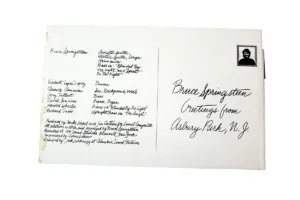 Bruce Springsteen
Acoustic Guitar,
Electric Guitar, Congas
Harmonica
Bass on "Blinded By
the Light" and "Spirit
In The Night"
Vincent Lopez
Drums
Clarence Clemons
Sax, Background Vocals
Garry Tallent
Bass
David Sancious
Piano, Organ
Harold Wheeler
Piano on "Blinded By the Light"
Richard Davis
Upright Bass on "The Angel"
Produced by Mike Appel and Jim Cretecos for Laurel Canyon Ltd.
All selections written and arranged by Bruce Springsteen
Recorded at 914 Sound Studios, Blauvelt, New York
Engineered by
Bruce Springsteen
Greetings from
Asbury Park, N.J.